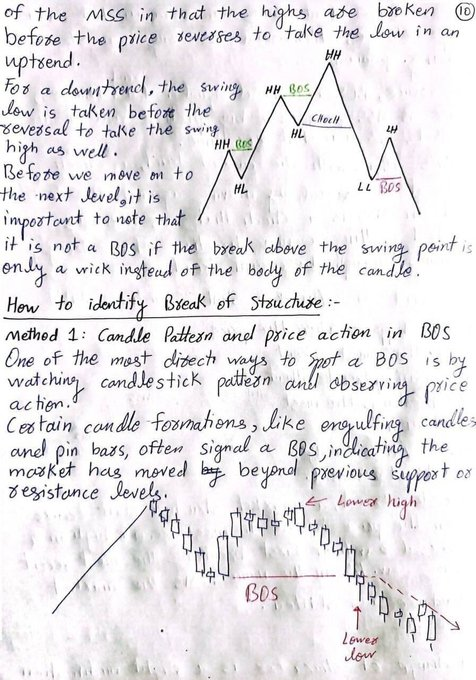 of the MSS in that the highs are broken
10
before the price reverses to take the low in an
uptrend.
For a downtrend, the swing
low is taken before the
reversal to take the swing
high as well.
Before we move on to
the next level, it is
important to note that
HH
HH BOS
HL
CHoCH
HH BOS
HL
LH
LL BOS
it is not a BOS if the break above the swing point is
only a wick instead of the body of the candle.
How to identify Break of Structure :-
Method 1: Candle Pattern and price action in BOS
One of the most direct ways to spot a BOS is by
watching candlestick pattern and observing price
action.
Certain candle formations, like engulfing candles
and pin bars, often signal a BOS, indicating the
market has moved by beyond previous support or
resistance levels.
Lower high
BOS
Lower
low